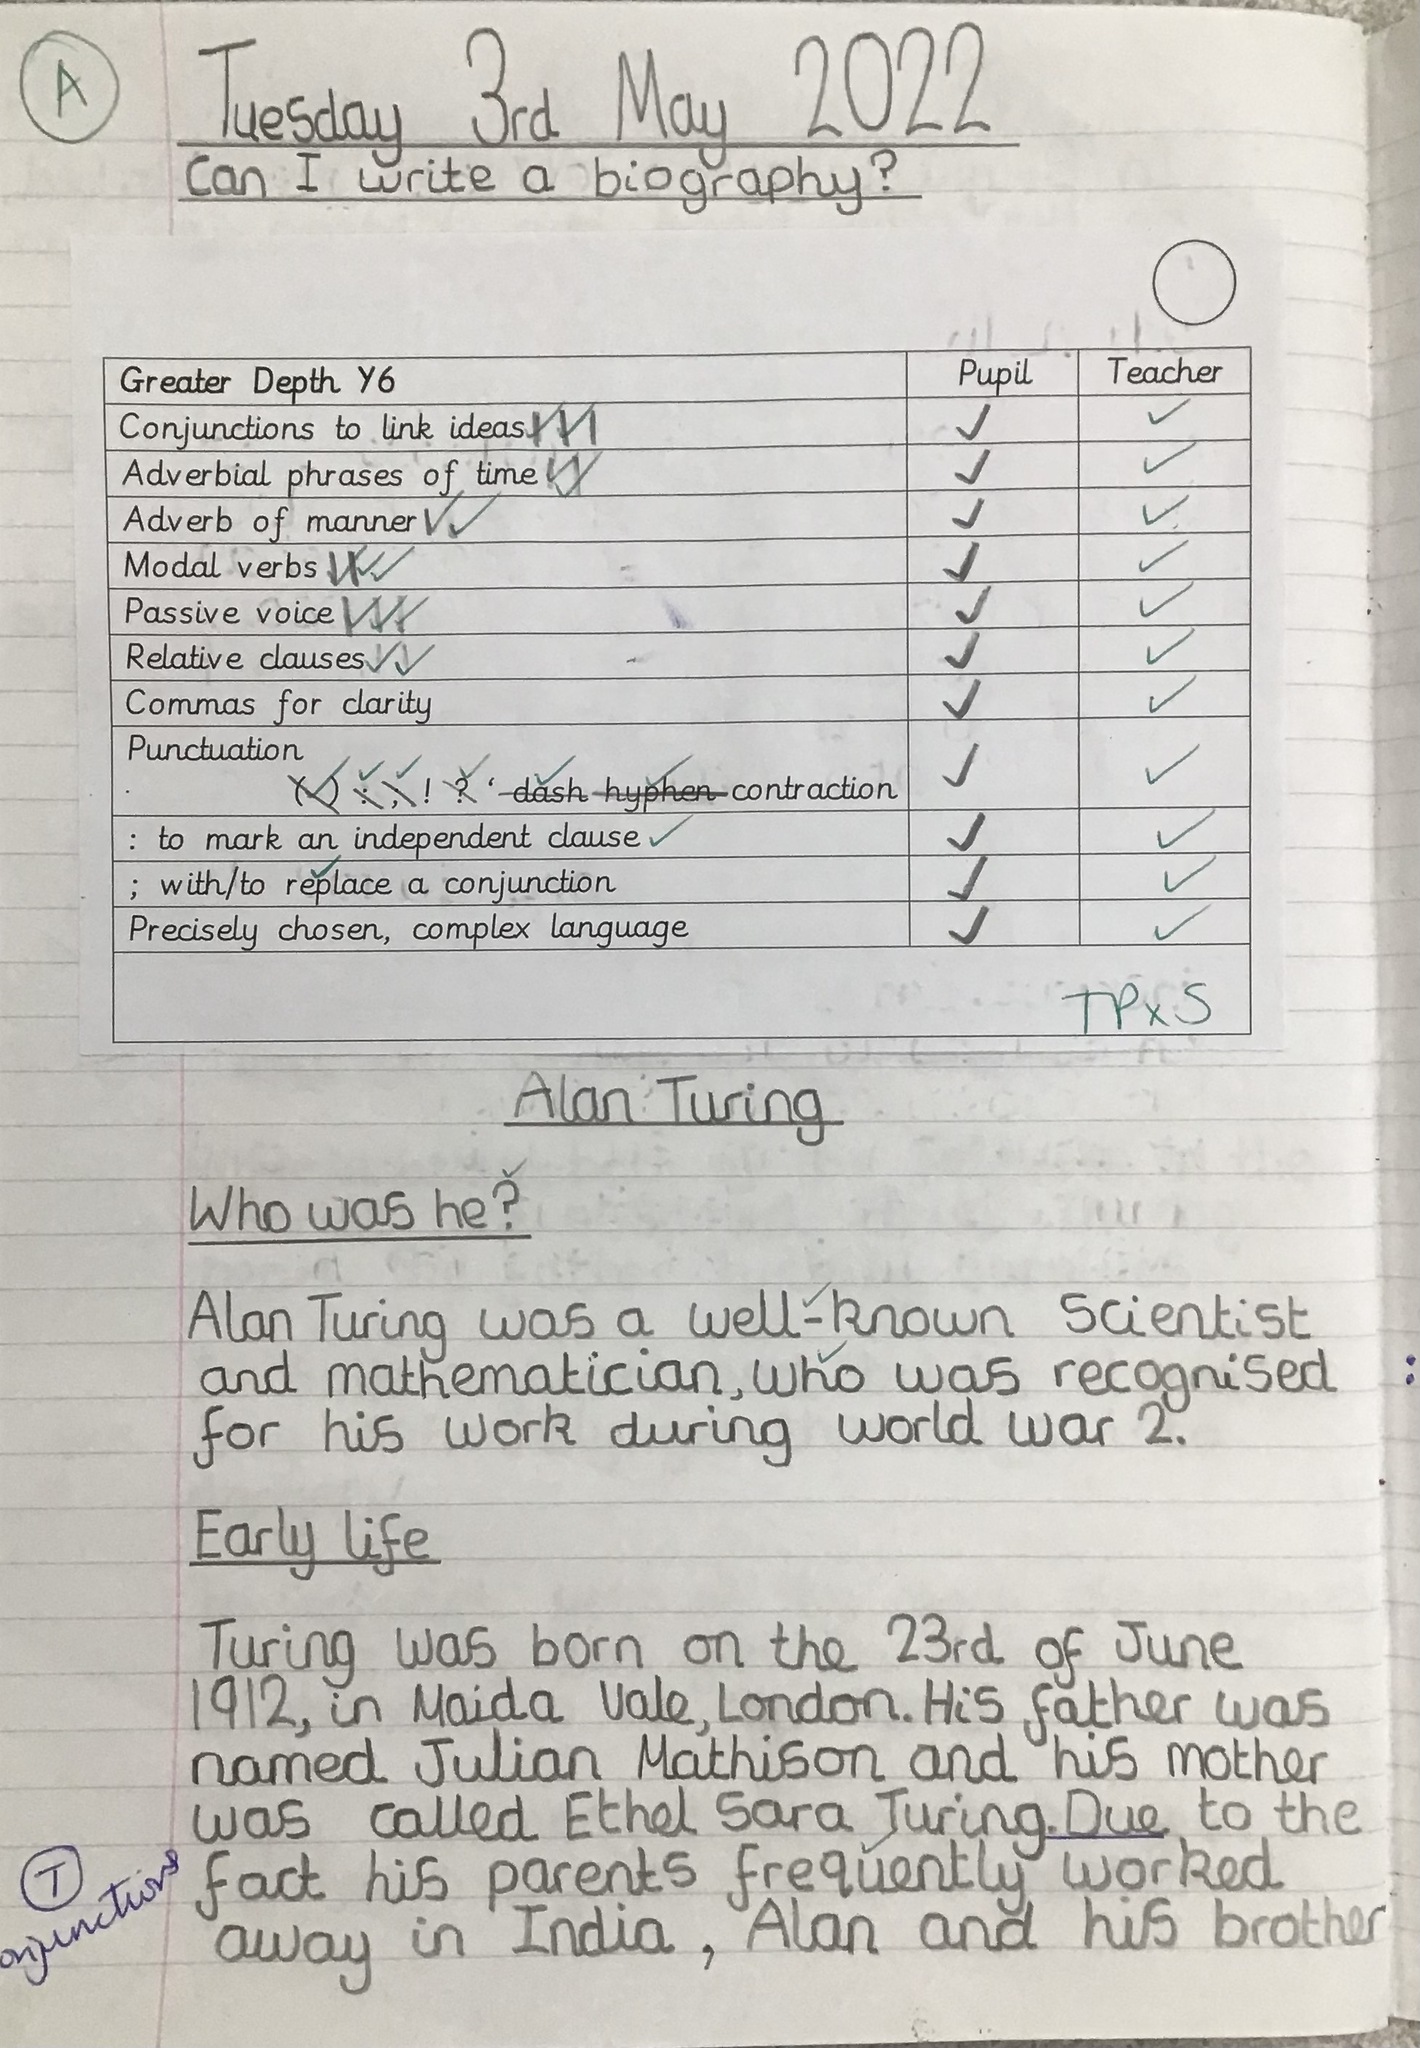 A
Tuesday 3rd May 2022
Can I write a biography?
Greater Depth Y6 Pupil Teacher
Conjunctions to link ideas
Adverbial phrases of time
Adverb of manner
Modal verbs
Passive voice
Relative clauses
Commas for clarity
Punctuation
( ) : , ! ? ‘ dash hyphen contraction
: to mark an independent clause
; with/to replace a conjunction
Precisely chosen, complex language
TPxS
Alan Turing
Who was he?
Alan Turing was a well-known Scientist
and mathematician, who was recognised
for his work during world war 2.
Early life
Turing was born on the 23rd of June
1912, in Maida Vale, London. His father was
named Julian Mathison and his mother
was called Ethel Sara Turing. Due to the
T
onjunctions
fact his parents frequently worked
away in India, Alan and his brother